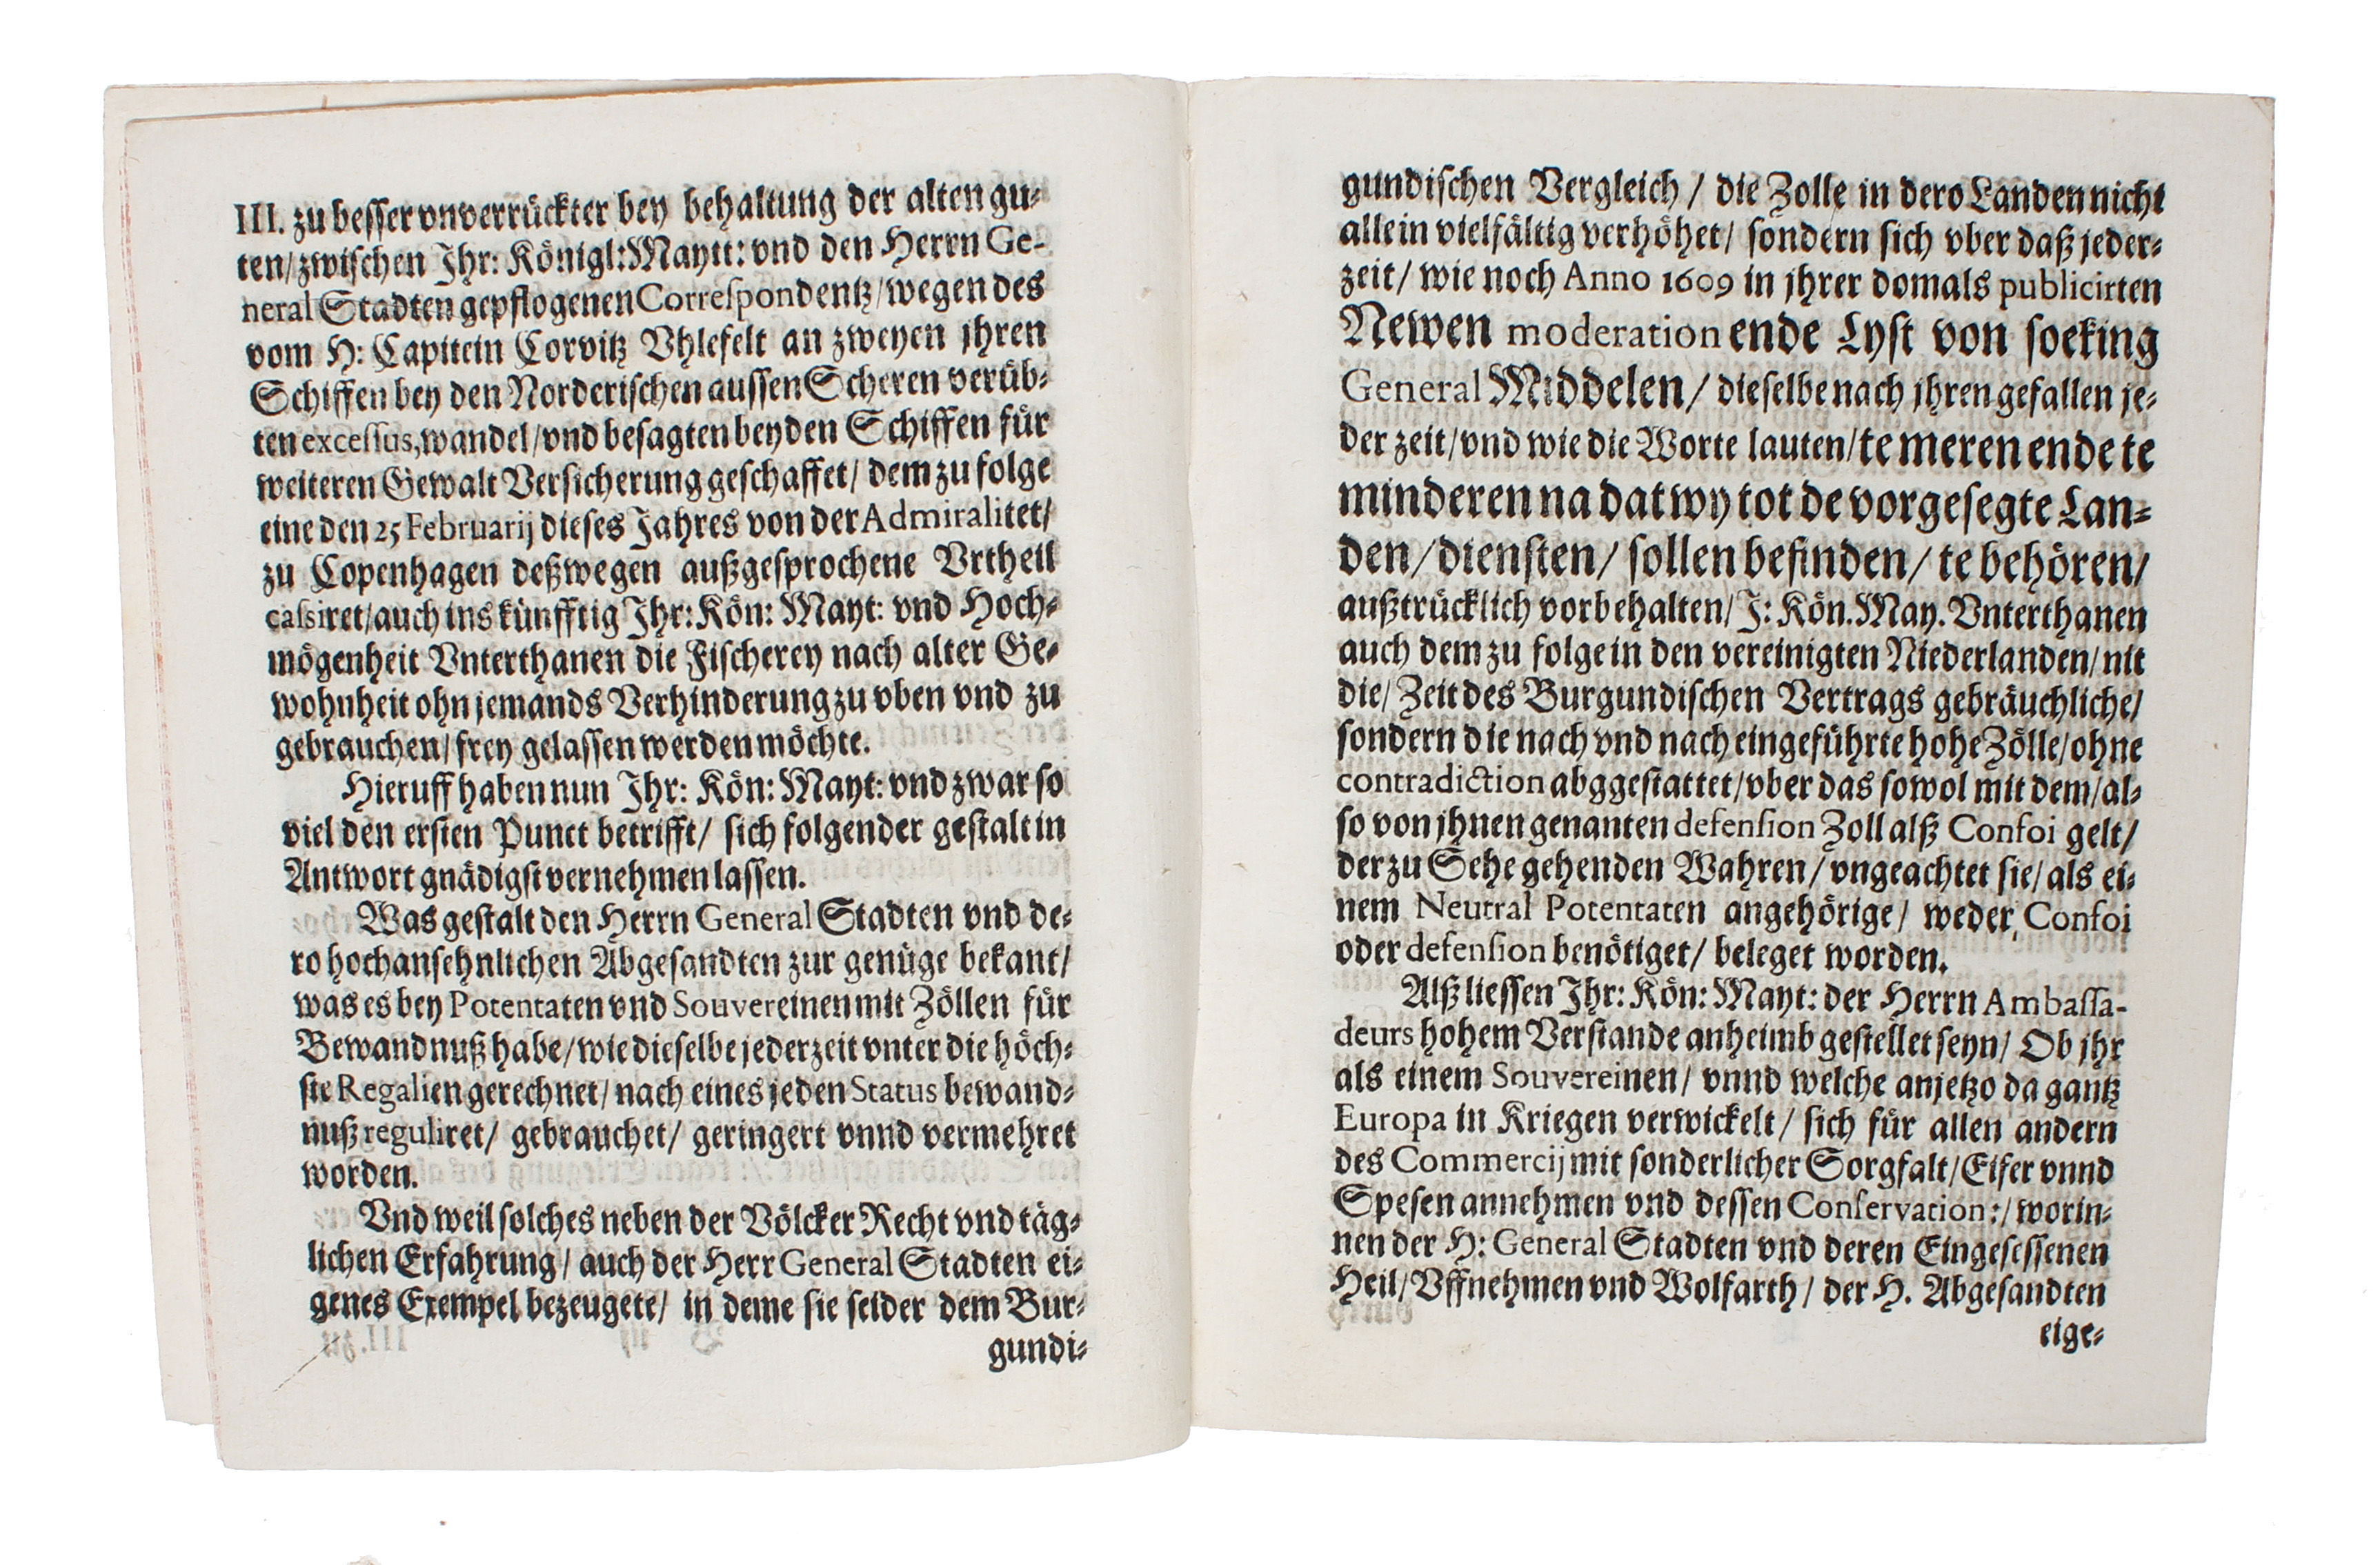 III. zu besser vnverrückter bey behaltung der alten gu-
ten/zwischen Ihr: Königl: Maytt: vnd den Herrn Ge-
neral Stadten gepflogenen Correspondentz/wegen des
vom H: Capitein Corvitz Vhlefelt an zweyen jhren
Schiffen bey den Norderischen aussen Scheren verüb-
ten excessus, wandel/vnd besagten beyden Schiffen für
weiteren Gewalt Versicherung geschaffet/ dem zu folge
eine den 25 Februarij dieses Jahres von der Admiralitet/
zu Copenhagen deßwegen außgesprochene Vrtheil
cassiret/auch ins künfftig Ihr: Kön: Mayt: vnd Hoch-
mögenheit Vnterthanen die Fischerey nach alter Ge-
wohnheit ohn jemands Verhinderung zu vben vnd zu
gebrauchen/ frey gelassen werden möchte.
Hieruff haben nun Ihr: Kön: Mayt: vnd zwar so
viel den ersten Punct betrifft/ sich folgender gestalt in
Antwort gnädigst vernehmen lassen.
Was gestalt den Herrn General Stadten vnd de-
ro hochansehnlichen Abgesandten zur genüge bekant/
was es bey Potentaten vnd Souvereinen mit Zöllen für
Bewandnuß habe/wie dieselbe jederzeit vnter die höch-
ste Regalien gerechnet/ nach eines jeden Status bewand-
nuß reguliret/ gebrauchet/ geringert vnnd vermehret
worden.
Vnd weil solches neben der Völcker Recht vnd täg-
lichen Erfahrung/ auch der Herr General Stadten ei-
genes Exempel bezeugete/ in deme sie seider dem Bur-
gundi-
gundischen Vergleich/ die Zolle in dero Landen nicht
allein vielfältig verhöhet/ sondern sich vber daß jeder-
zeit/ wie noch Anno 1609 in jhrer domals publicirten
Newen moderation ende Lyst von soeking
General Middelen/ dieselbe nach jhren gefallen je-
der zeit/vnd wie die Worte lauten/te meren ende te
minderen na dat wy tot de vorgesegte Lan-
den/diensten/ sollen befinden/ te behören/
außtrücklich vorbehalten/ J: Kön. May. Vnterthanen
auch dem zu folge in den vereinigten Niederlanden/ nit
die/ Zeit des Burgundischen Vertrags gebräuchliche/
sondern die nach vnd nach eingeführte hohe Zölle/ohne
contradiction abggestattet/vber das sowol mit dem/al-
so von jhnen genanten defension Zoll alß Confoi gelt/
der zu Sehe gehenden Wahren/ vngeachtet sie/ als ei-
nem Neutral Potentaten angehörige/ weder Confoi
oder defension benötiget/ beleget worden.
Alß liessen Ihr: Kön: Mayt: der Herrn Ambassa-
deurs hohem Verstande anheimb gestellet seyn/ Ob jhr
als einem Souvereinen/ vnnd welche anjetzo da gantz
Europa in Kriegen verwickelt/ sich für allen andern
des Commercij mit sonderlicher Sorgfalt/Eifer vnnd
Spesen annehmen vnd dessen Conservation:/ worin-
nen der H: General Stadten vnd deren Eingesessenen
Heil/Vffnehmen vnd Wolfarth/ der H. Abgesandten
eige-